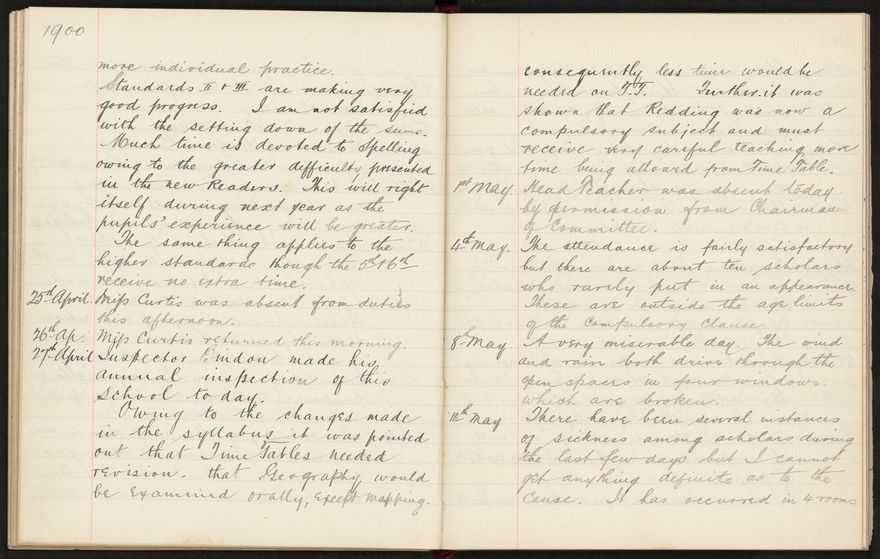 1900
more individual practice.
Standards II & III are making very
good progress. I am not satisfied
with the setting down of the sums.
Much time is devoted to Spelling
owing to the greater difficulty presented
in the new Readers. This will right
itself during next year as the
pupils' experience will be greater.
The same thing applies to the
higher standards though the 5th & 6th
receive no extra time.
25th April. Miss Curtis was absent from duties
this afternoon.
26th Ap. Miss Curtis returned this morning.
27th April Inspector made his
annual inspection of this
School today.
Owing to the changes made
in the syllabus it was pointed
out that Time Tables needed
revision. that Geography would
be examined orally, except mapping.
consequently less time would be
needed on T.T. Further it was
shown that Reading was now a
compulsory subject and must
receive very careful teaching, more
time being allowed from Time Table.
1st May Head Teacher was absent today
by permission from Chairman
of Committee.
4th May. The attendance is fairly satisfactory
but there are about ten scholars
who rarely put in an appearance.
These are outside the age limits
of the Compulsory clause
8th May. A very miserable day. The wind
and rain both drive through the
open spaces in four windows.
which are broken.
11th May There have been several instances
of sickness among scholars during
the last few days but I cannot
get anything definite as to the
cause. It has occurred in 4 rooms.